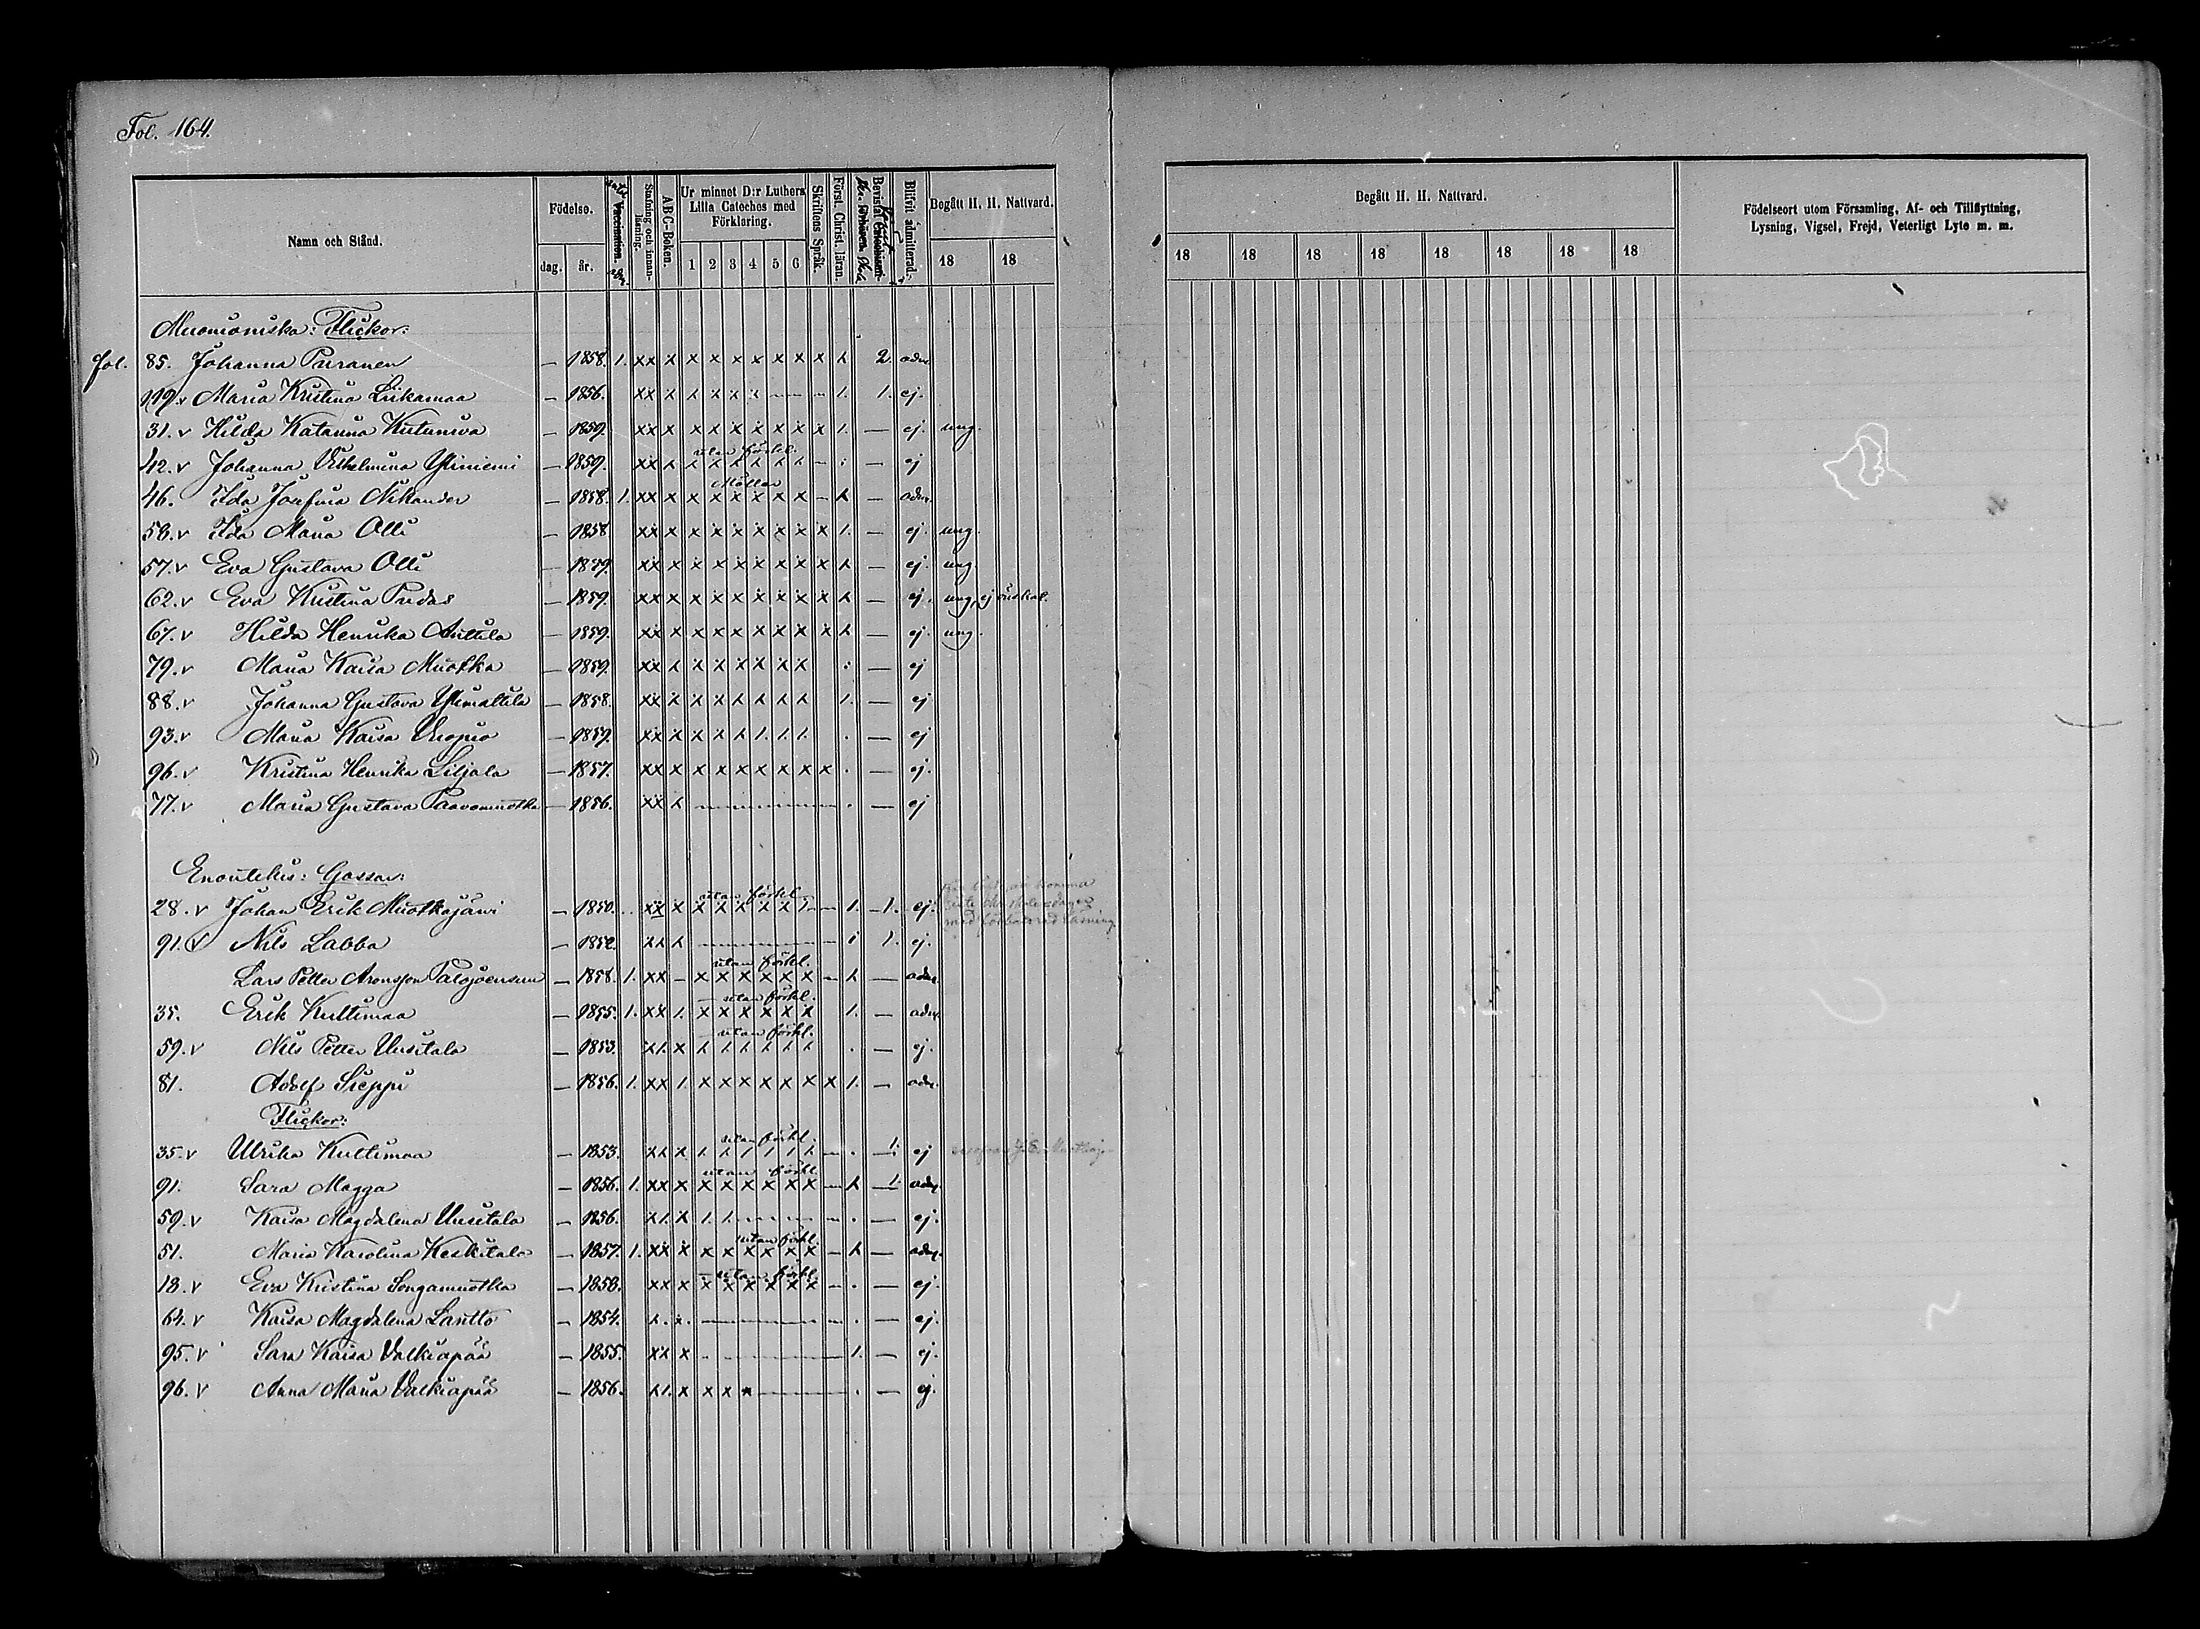 Fol. 164.
Namn och Stånd.
Födelse.
dag. år.
Vaccination.
Stafning och innanläsning.
ABC-Boken.
Ur minnet D:r Luthers Lilla Cateches med Förklaring.
1 2 3 4 5 6
Skriftens Språk.
Först. Christ. läran.
Blifvit admitterad.
Begått H. H. Nattvard.
18 18
Begått H. H. Nattvard.
18 18 18 18 18 18 18 18
Födelseort utom Församling, Af- och Tillflyttning,
Lysning, Vigsel, Frejd, Veterligt Lyte m. m.
Muonioniska: Flickor:
fol. 85. Johanna Pairanen — 1858. 1. xx x x x x x x x x x 2. adm.
119. v Maria Kristina Liikamaa — 1856. xx x x x x x — — — 1. 1. ej.
31. v Hilda Katarina Kutuniva — 1859. xx x x x x x x x x 1. — ej. ung.
utan förkl.
42. v Johanna Vilhelmina Yliniemi — 1859. xx x x x x x x x — — ej
46. Ida Josefina Nikander — 1858. 1. xx x x x x x x x — x — adm.
58. v Ida Maria Olli — 1858 xx x x x x x x x x 1. — ej. ung.
57. v Eva Gustava Olli — 1859. xx x x x x x x x x x — ej. ung.
62. v Eva Kristina Pudas — 1859. xx x x x x x x x x x — ej. ung, ej
67. v Hilda Henrika Anttila — 1859. xx x x x x x x x x x — ej. ung.
79. v Maria Kaisa Muotka — 1859. xx x x x x x x x — ej
88. v Johanna Gustava Ylimattila — 1858. xx x x x x x x x 1. — ej
93. v Maria Kaisa Vuopio — 1859. xx x x x x 1. 1. 1. . — ej
96. v Kristina Henrika Liljala — 1857. xx x x x x x x x x . — ej.
77. v Maria Gustava Paavonmuotka — 1856. xx x — . — ej
Enontekis: Gossar:
utan förkl.
28. v Johan Erik Muotkajärvi — 1850. xx x x x x x x 1 — — 1. — 1. ej.
91. v Nils Labba — 1852. xx x — 1. ej.
utan förkl.
Lars Petter Aronsson Palojoensuu — 1858. 1. xx — x x x x x x — x — adm.
— utan förkl.
35. Erik Kultimaa — 1855. 1. xx 1. x x x x x x 1. — adm.
— utan förkl.
59. v Nils Petter Uusitalo — 1853. x1. x 1. 1. 1. 1. 1. 1. . — ej.
81. Adolf Sieppi — 1856. 1. xx 1. x x x x x x x 1. — adm.
Flickor:
utan förkl.
35. v Ulrika Kultimaa — 1853. xx x 1. 1. 1 1 1 1. — . — 1. ej
utan förkl.
91. Sara Magga — 1856. 1. xx x x x x x x x — x — 1. adm.
59. v Kaisa Magdalena Uusitalo — 1856. x1. x 1. 1. — — . — ej.
utan förkl.
51. Maria Karolina Keskitalo — 1857. 1. xx x x x x x x x — x — adm.
— utan förkl.
18. v Eva Kristina Songamuotka — 1858. xx x x x x x x x — . — ej.
64. v Kaisa Magdalena Lantto — 1854. x. x. — — . — ej.
95. v Sara Kaisa Valkiapää — 1855. xx x — 1. — ej.
96. v Anna Maria Valkiapää — 1856. x1. x x x x — . — ej.